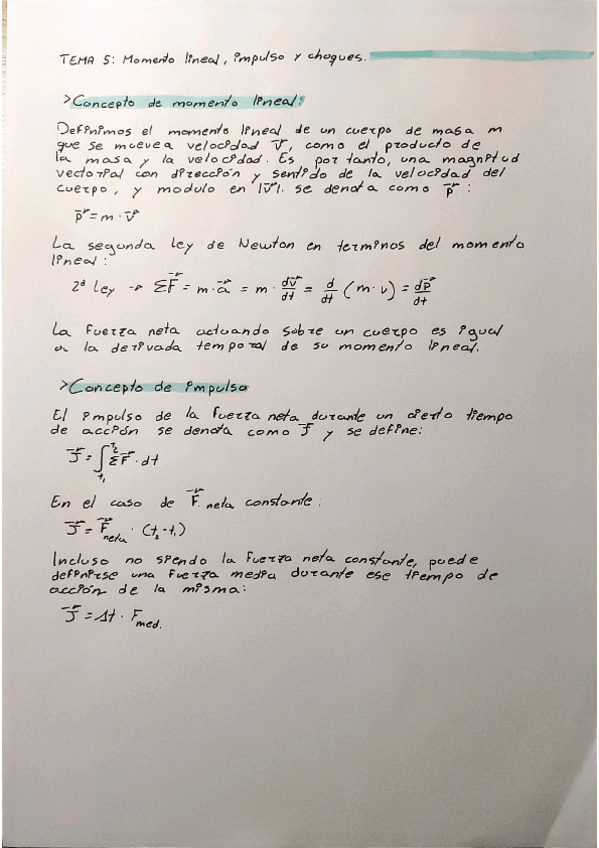 TEMA 5: Momento lineal, impulso y choques.
>Concepto de momento lineal:
Definimos el momento lineal de un cuerpo de masa m
que se mueve a velocidad v⃗, como el producto de
la masa y la velocidad. Es por tanto, una magnitud
vectorial con dirección y sentido de la velocidad del
cuerpo, y modulo en |v⃗|. se denota como p⃗ :
p⃗ = m · v⃗
La segunda ley de Newton en terminos del momento
lineal:
2ª ley → ΣF⃗ = m · a⃗ = m · dv⃗/dt = d/dt (m · v) = dp⃗/dt
La fuerza neta actuando sobre un cuerpo es igual
a la derivada temporal de su momento lineal.
>Concepto de impulso
El impulso de la fuerza neta durante un cierto tiempo
de acción se denota como J⃗ y se define:
J⃗ = ∫_{t₁}^{t₂} ΣF⃗ · dt
En el caso de F⃗ neta constante:
J⃗ = F⃗neta · (t₂ - t₁)
Incluso no siendo la fuerza neta constante, puede
definirse una fuerza media durante ese tiempo de
acción de la misma:
J⃗ = Δt · Fmed.